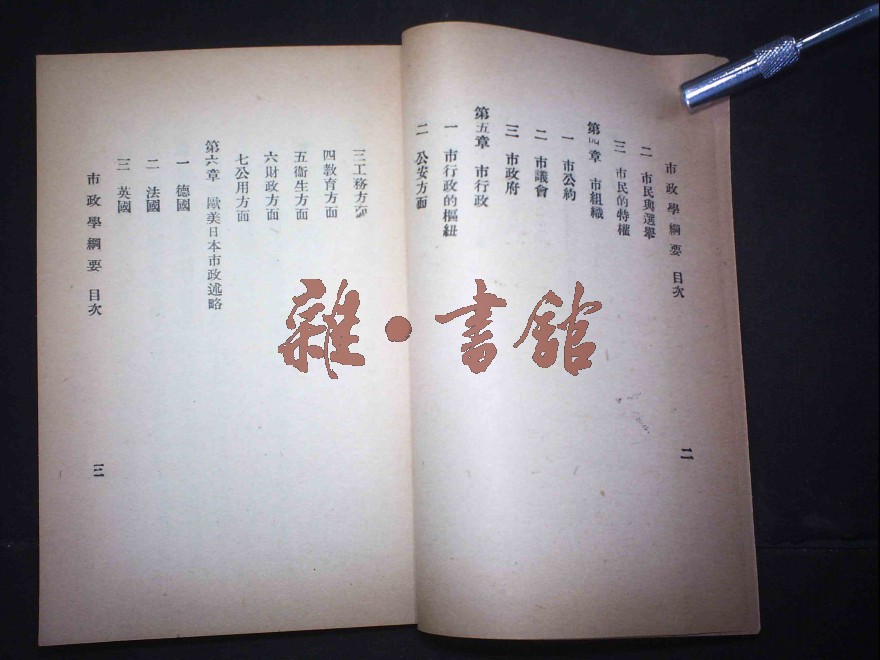 市政學綱要 目次
二 市民與選舉
三 市民的特權
第四章 市組織
一 市公約
二 市議會
三 市政府
第五章 市行政
一 市行政的樞紐
二 公安方面
二
三工務方面
四教育方面
五衞生方面
六財政方面
七公用方面
第六章 歐美日本市政述略
一 德國
二 法國
三 英國
市政學綱要 目次
三
雜·書館